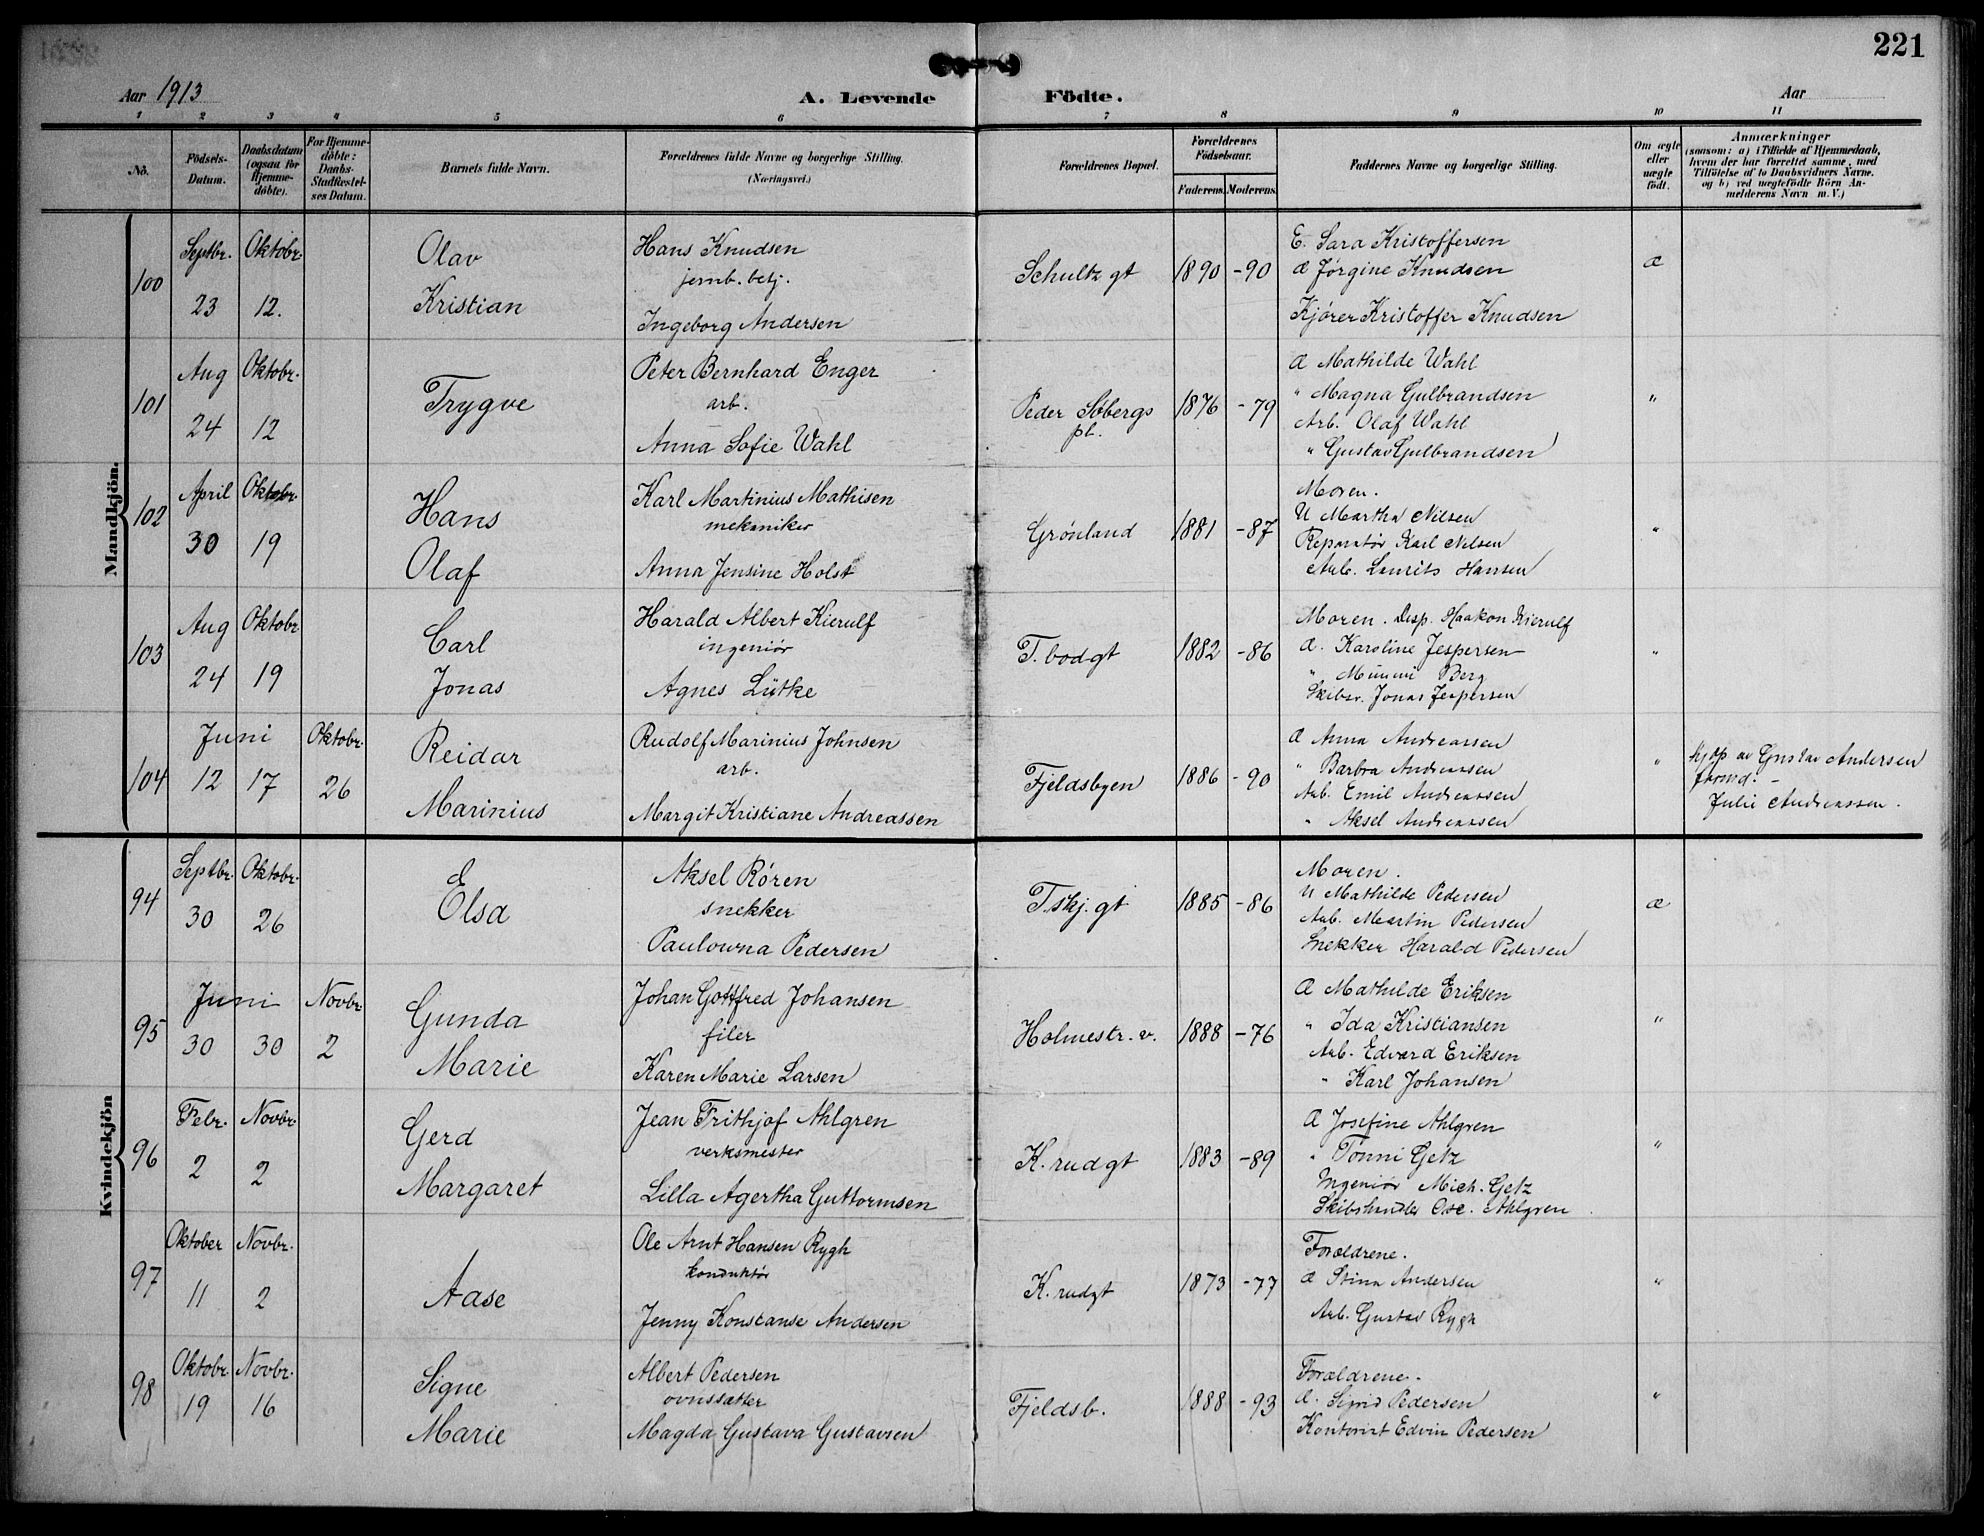 221
Aar 1913
A. Levende Födte.
Aar
1 2 3 4 5 6 7 8 9 10 11
No.
Födsels-Datum.
Daabsdatum (ogsaa for Hjemme-döbte).
For Hjemme-döbte: Daabs-Stadfæstel-ses Datum.
Barnets fulde Navn.
Forældrenes fulde Navne og borgerlige Stilling. (Næringsvei.)
Forældrenes Bopæl.
Forældrenes Födselsaar.
Faderens. Moderens.
Faddernes Navne og borgerlige Stilling.
Om ægte eller uægte födt.
Anmærkninger
(saasom: a) i Tilfælde af Hjemmedaab,
hvem der har forrettet samme, med
Tilföielse af to Daabsvidners Navne.
og b) ved uægtefödte Börn An-
melderens Navn m. V.)
Mandkjön.
100
Septbr. 23
Oktobr. 12.
Olav
Kristian
Hans Knudsen
jernb. betj.
Ingeborg Andersen
Schultz gt
1890 -90
E. Sara Kristoffersen
Æ Jørgine Knudsen
Kjører Kristoffer Knudsen
æ
101
Aug 24
Oktobr. 12
Trygve
Peter Bernhard Enger
arb.
Anna Sofie Wahl
Peder Søbergs
pl.
1876 -79
Æ Mathilde Wahl
" Magna Gulbrandsen
Arb. Olaf Wahl
" Gustav Gulbrandsen
"
102
April 30
Oktobr 19
Hans
Olaf
Karl Martinius Mathisen
mekaniker
Anna Jensine Holst
Grønland
1881 -87
Moren.
U Martha Nilsen
Reparatør Karl Nilsen
Arb. Laurits Hansen
"
103
Aug 24
Oktobr 19
Carl
Jonas
Harald Albert Kierulf
ingeniør
Agnes Lütke
T. bodgt
1882 -86
Moren. Disp. Haakon Kierulf
Æ. Karoline Jespersen
" Mimmi Berg
Skibsr. Jonas Jespersen
"
104
Juni
12 17
Oktobr. 26
Reidar
Marinius
Rudolf Marinius Johnsen
arb.
Margit Kristiane Andreassen
Fjeldsbyen
1886 -90
Æ Anna Andreassen
" Barbra Andreassen
Arb. Emil Andreassen
" Aksel Andreassen
"
Hjdp av Gustav Andersen
Julie Andreassen.
Kvindekjön
94
Septbr. 30
Oktobr. 26
Elsa
Aksel Røren
snekker
Paulowna Pedersen
T.skj. gt
1885 -86
Moren.
U Mathilde Pedersen
Arb. Martin Pedersen
Snekker Harald Pedersen
æ
95
Juni
30 30
Novbr 2
Gunda
Marie
Johan Gottfred Johansen
filer
Karen Marie Larsen
Holmestr. v.
1888 -76
Æ Mathilde Eriksen
" Ida Kristiansen
Arb. Edvard Eriksen
" Karl Johansen
"
96
Febr. 2
Novbr. 2
Gerd
Margaret
Jean Frithjof Ahlgren
verksmester
Lilla Agertha Guttormsen
K. rudgt
1883 -89
Æ Josefine Ahlgren
" Tonni Getz
Ingeniør Mich. Getz
Skibshandler Osc. Ahlgren
"
97
Oktober 11
Novbr. 2
Aase
Ole Arnt Hansen Rygh
konduktør
Jenny Konstanse Andersen
K. rudgt
1873 -77
Forældrene.
Æ Stina Andersen
Arb. Gustav Rygh
"
98
Oktobr. 19
Novbr. 16
Signe
Marie
Albert Pedersen
ovnssætter
Magda Gustava Gustavsen
Fjeldsb.
1888 -93
Forældrene.
Æ. Sigrid Pedersen
Kontorist Edvin Pedersen
"